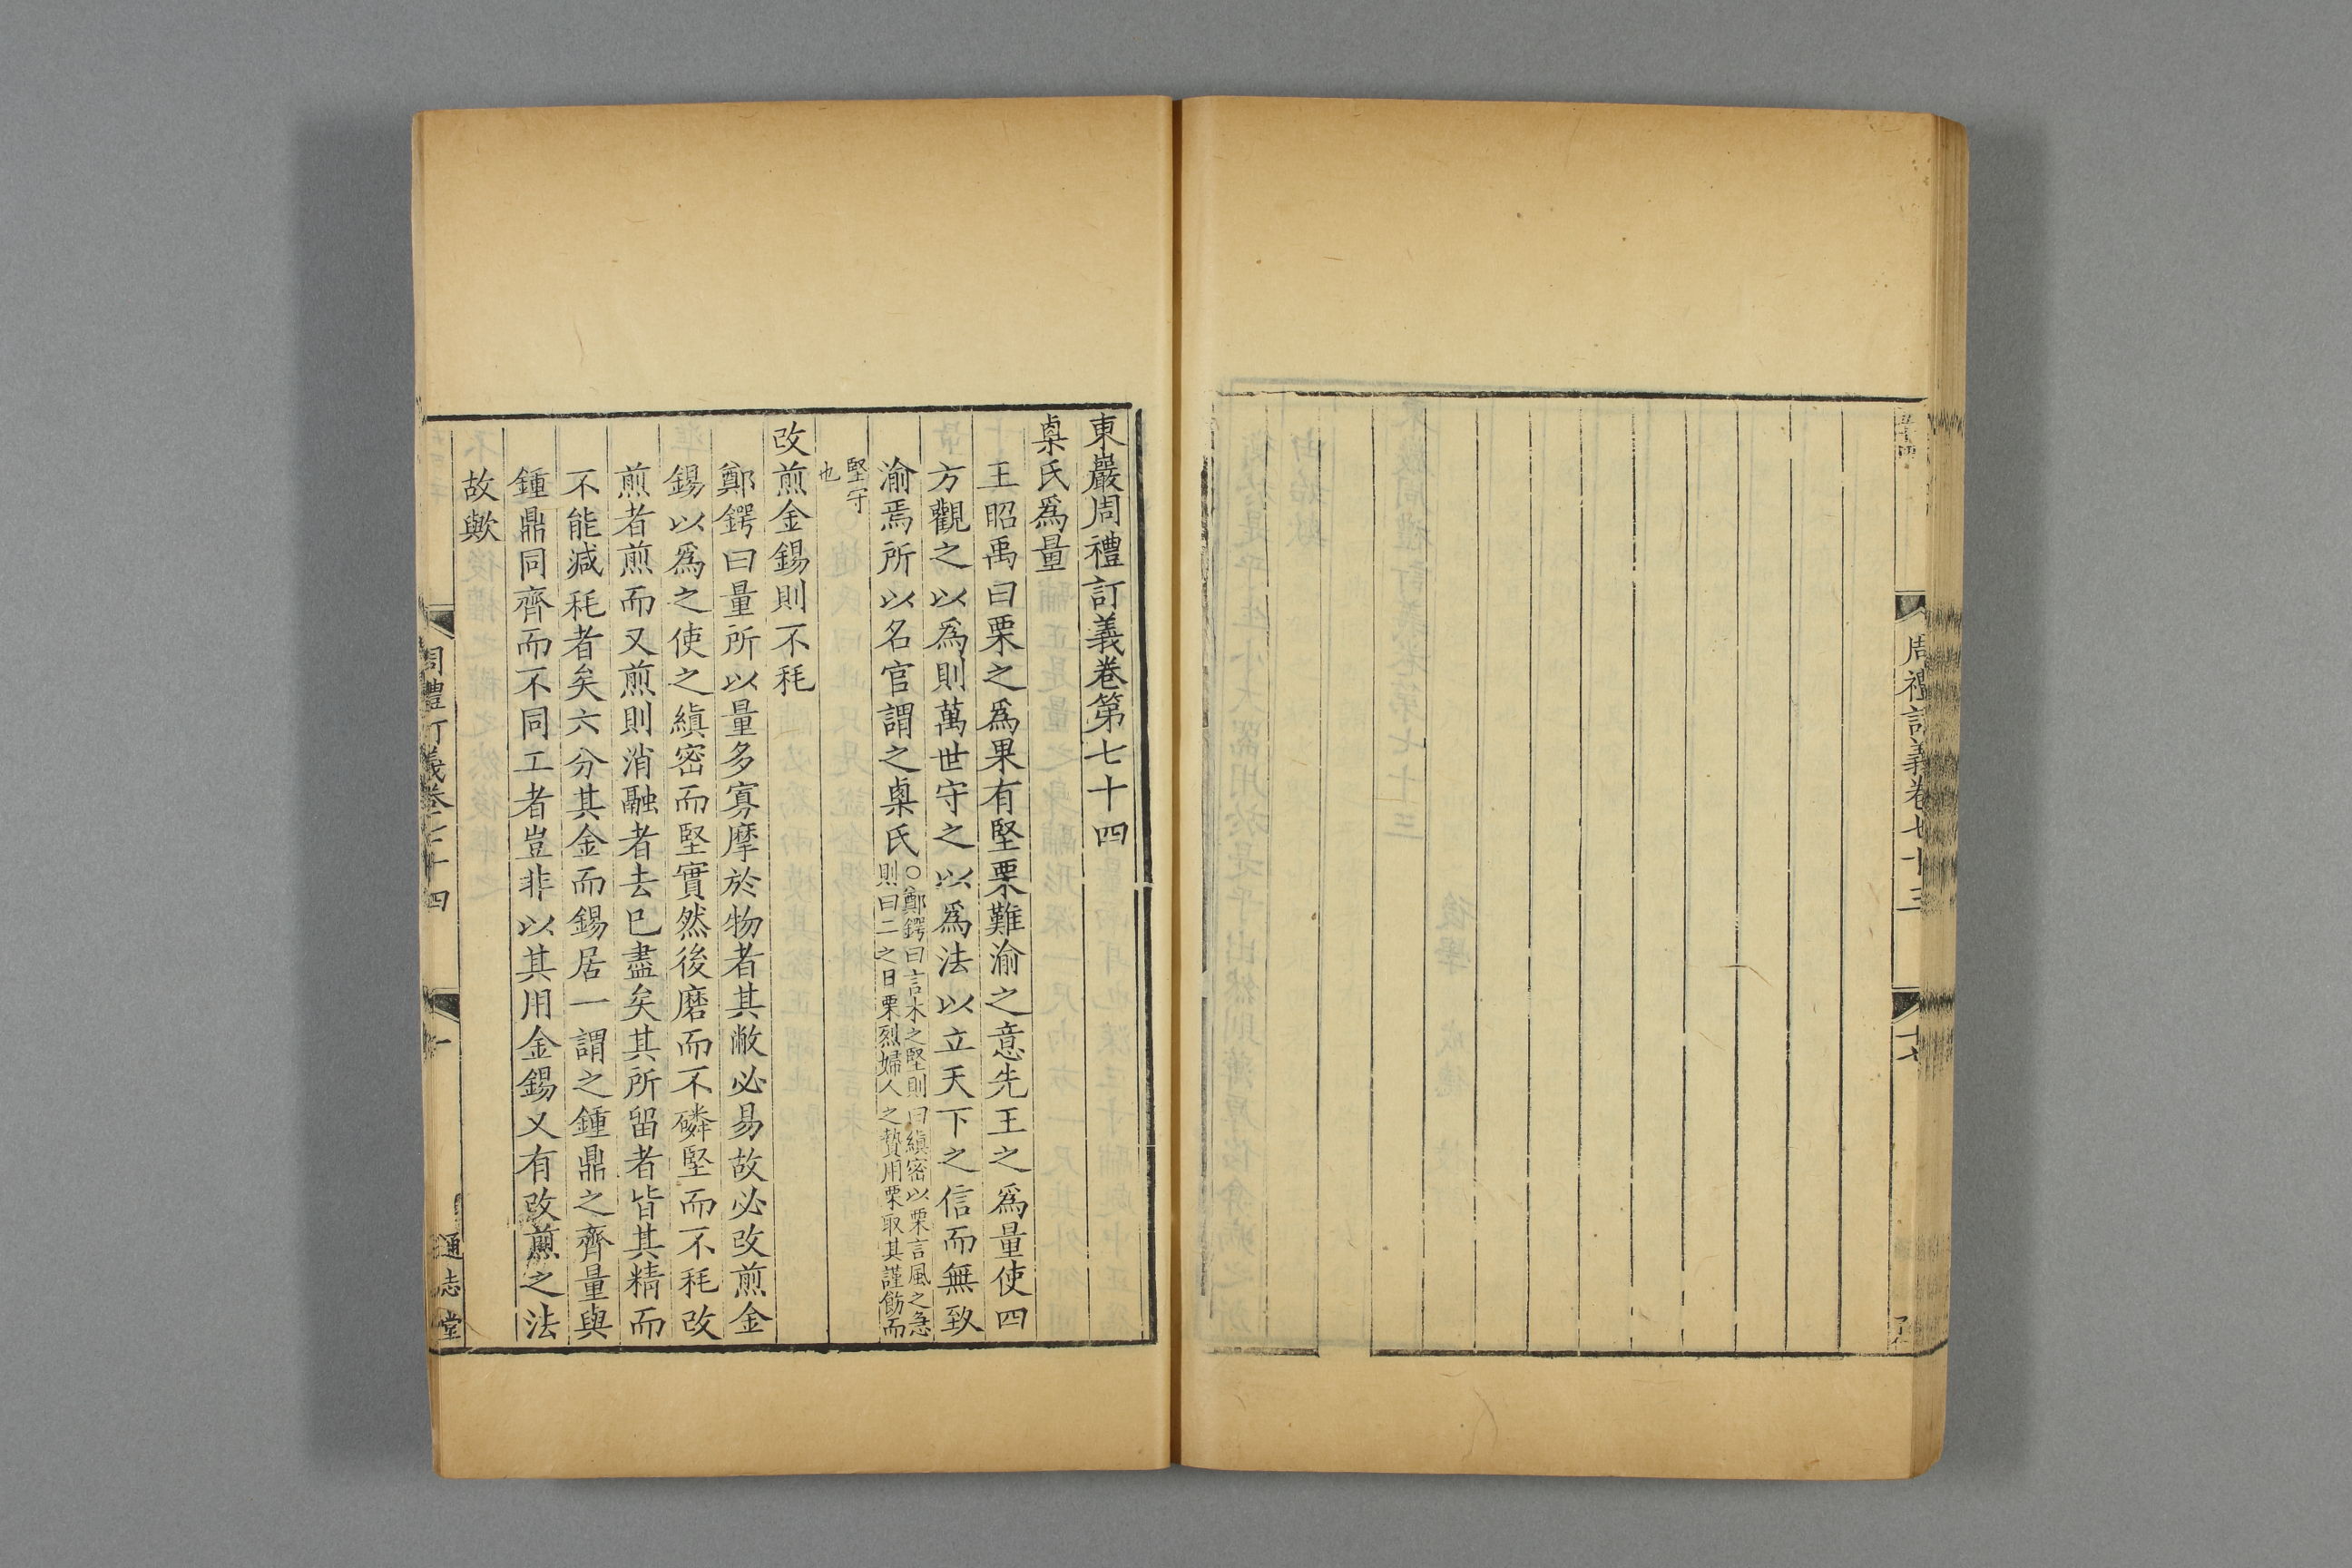 周禮訂義卷七十三
東巖周禮訂義卷第七十四
㮚氏爲量
王昭禹曰栗之爲果有堅栗難渝之意先王之爲量使四
方觀之以爲則萬世守之以爲法以立天下之信而無致
渝焉所以名官謂之㮚氏
○鄭鍔曰言木之堅則曰縝密以栗言風之急
則曰二之日栗烈婦人之贄用栗取其謹飭而
堅守
也
改煎金錫則不秏
鄭鍔曰量所以量多寡摩於物者其敝必易故必改煎金
錫以爲之使之縝密而堅實然後磨而不磷堅而不秏改
煎者煎而又煎則消融者去已盡矣其所留者皆其精而
不能減秏者矣六分其金而錫居一謂之鍾鼎之齊量與
鍾鼎同齊而不同工者豈非以其用金錫又有改煎之法
故歟
周禮訂義卷七十四
一
通志堂